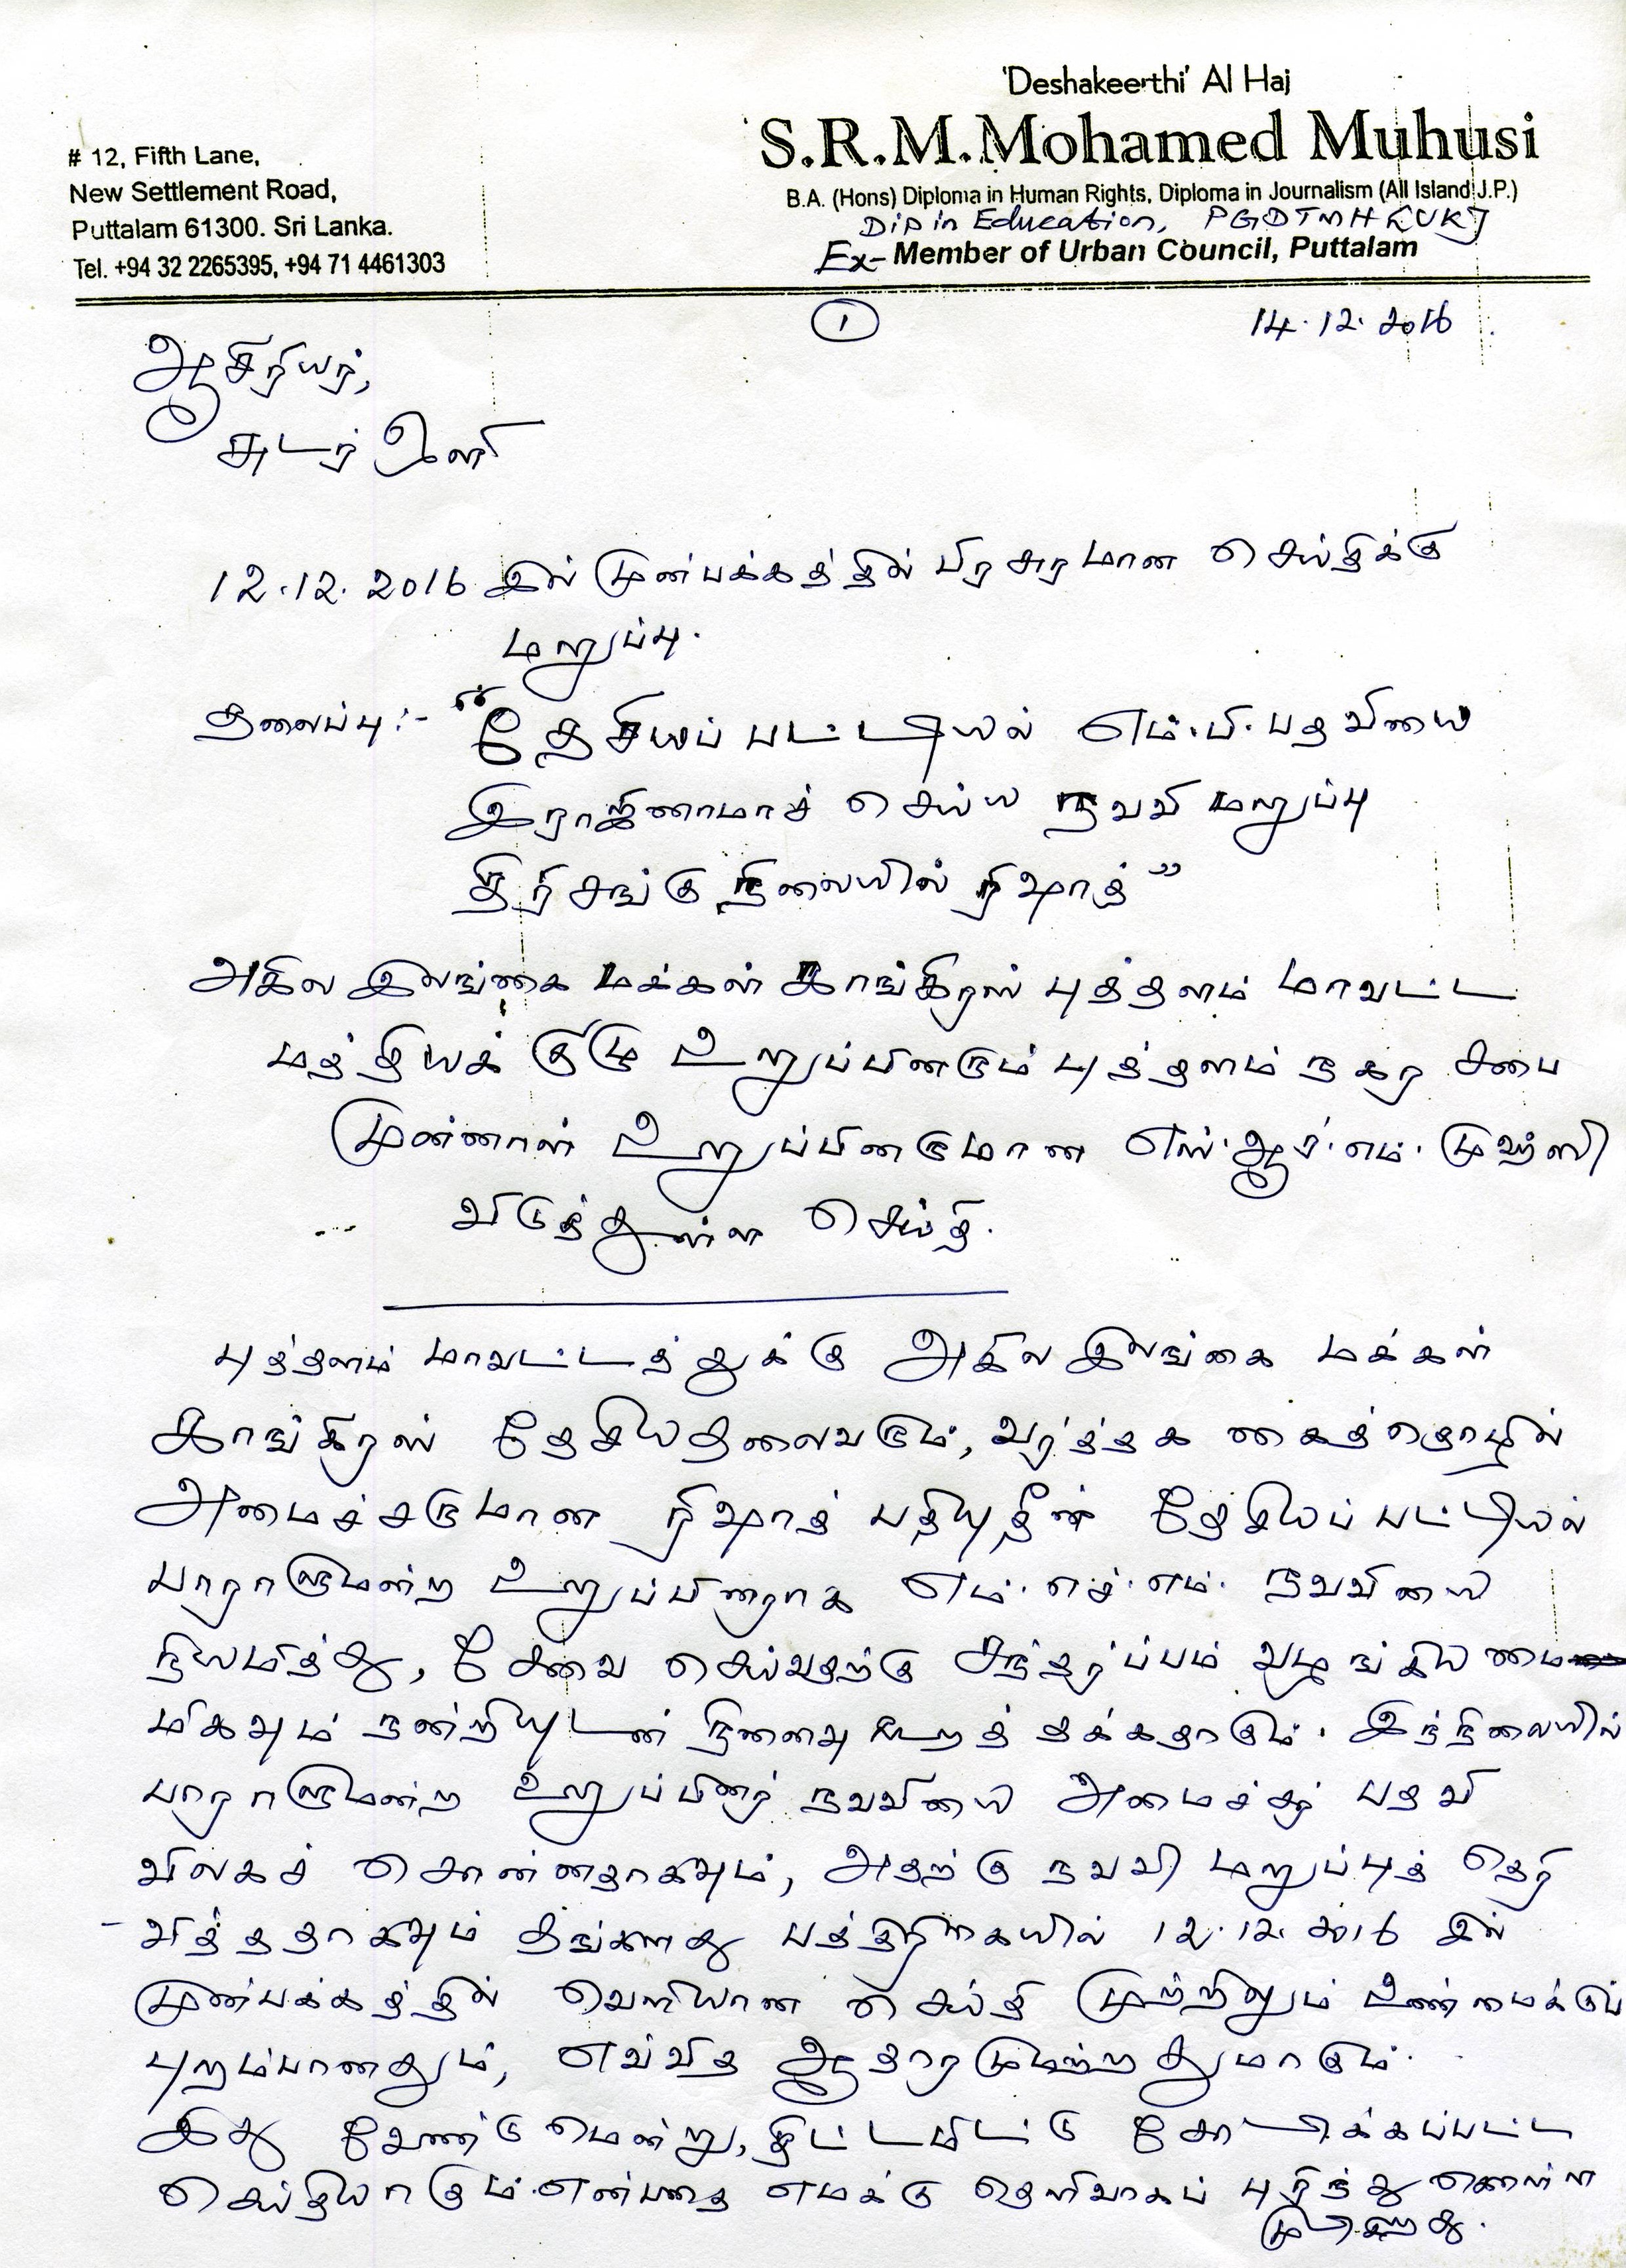 'Deshakeerthi' Al Haj
S.R.M.Mohamed Muhusi
B.A. (Hons) Diploma in Human Rights, Diploma in Journalism (All Island J.P.)
Dip in Education, PGDTMH (UK)
Ex- Member of Urban Council, Puttalam
# 12, Fifth Lane,
New Settlement Road,
Puttalam 61300. Sri Lanka.
Tel. +94 32 2265395, +94 71 4461303
1
14.12.2016
ஆசிரியர்,
சுடர் ஒளி
12.12.2016 இல் முன்பக்கத்தில் பிரசுரமான செய்திக்கு
மறுப்பு.
தலைப்பு:- "தேசியப் பட்டியல் எம்.பி. பதவியை
இராஜினாமாச் செய்ய நவவி மறுப்பு
திரிசங்கு நிலையில் ரிஷாத்"
அகில இலங்கை மக்கள் காங்கிரஸ் புத்தளம் மாவட்ட
மத்தியக் குழு உறுப்பினரும் புத்தளம் நகர சபை
முன்னாள் உறுப்பினருமான எஸ்.ஆர்.எம். முஹ்ஸி
விடுத்துள்ள செய்தி.
புத்தளம் மாவட்டத்துக்கு அகில இலங்கை மக்கள்
காங்கிரஸ் தேசிய தலைவரும், வர்த்தக கைத்தொழில்
அமைச்சருமான ரிஷாத் பதியுதீன் தேசியப் பட்டியல்
பாராளுமன்ற உறுப்பினராக எம்.எச்.எம். நவவியை
நியமித்து, சேவை செய்வதற்கு சந்தர்ப்பம் வழங்கியமை
மிகவும் நன்றியுடன் நினைவு கூறத் தக்கதாகும். இந்நிலையில்
பாராளுமன்ற உறுப்பினர் நவவியை அமைச்சர் பதவி
விலகச் சொன்னதாகவும், அதற்கு நவவி மறுப்புத் தெரி
-வித்ததாகவும் தங்களது பத்திரிகையில் 12.12.2016 இல்
முன்பக்கத்தில் வெளியான செய்தி முற்றிலும் உண்மைக்குப்
புறம்பானதும், எவ்வித ஆதாரமுமற்றதுமாகும்.
இது வேண்டுமென்று, திட்டமிட்டு சோடிக்கப்பட்ட
செய்தியாகும் என்பதை எமக்கு தெளிவாகப் புரிந்து கொள்ள
முடிகிறது.